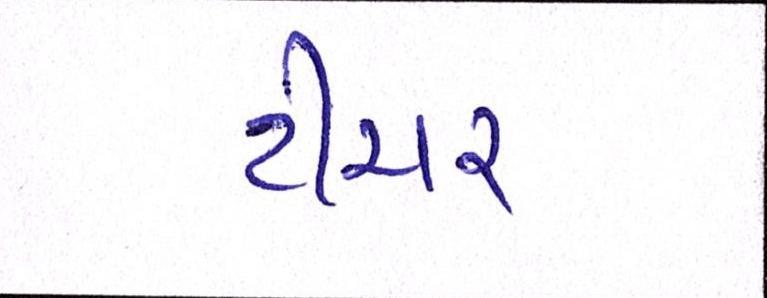 ટીચર